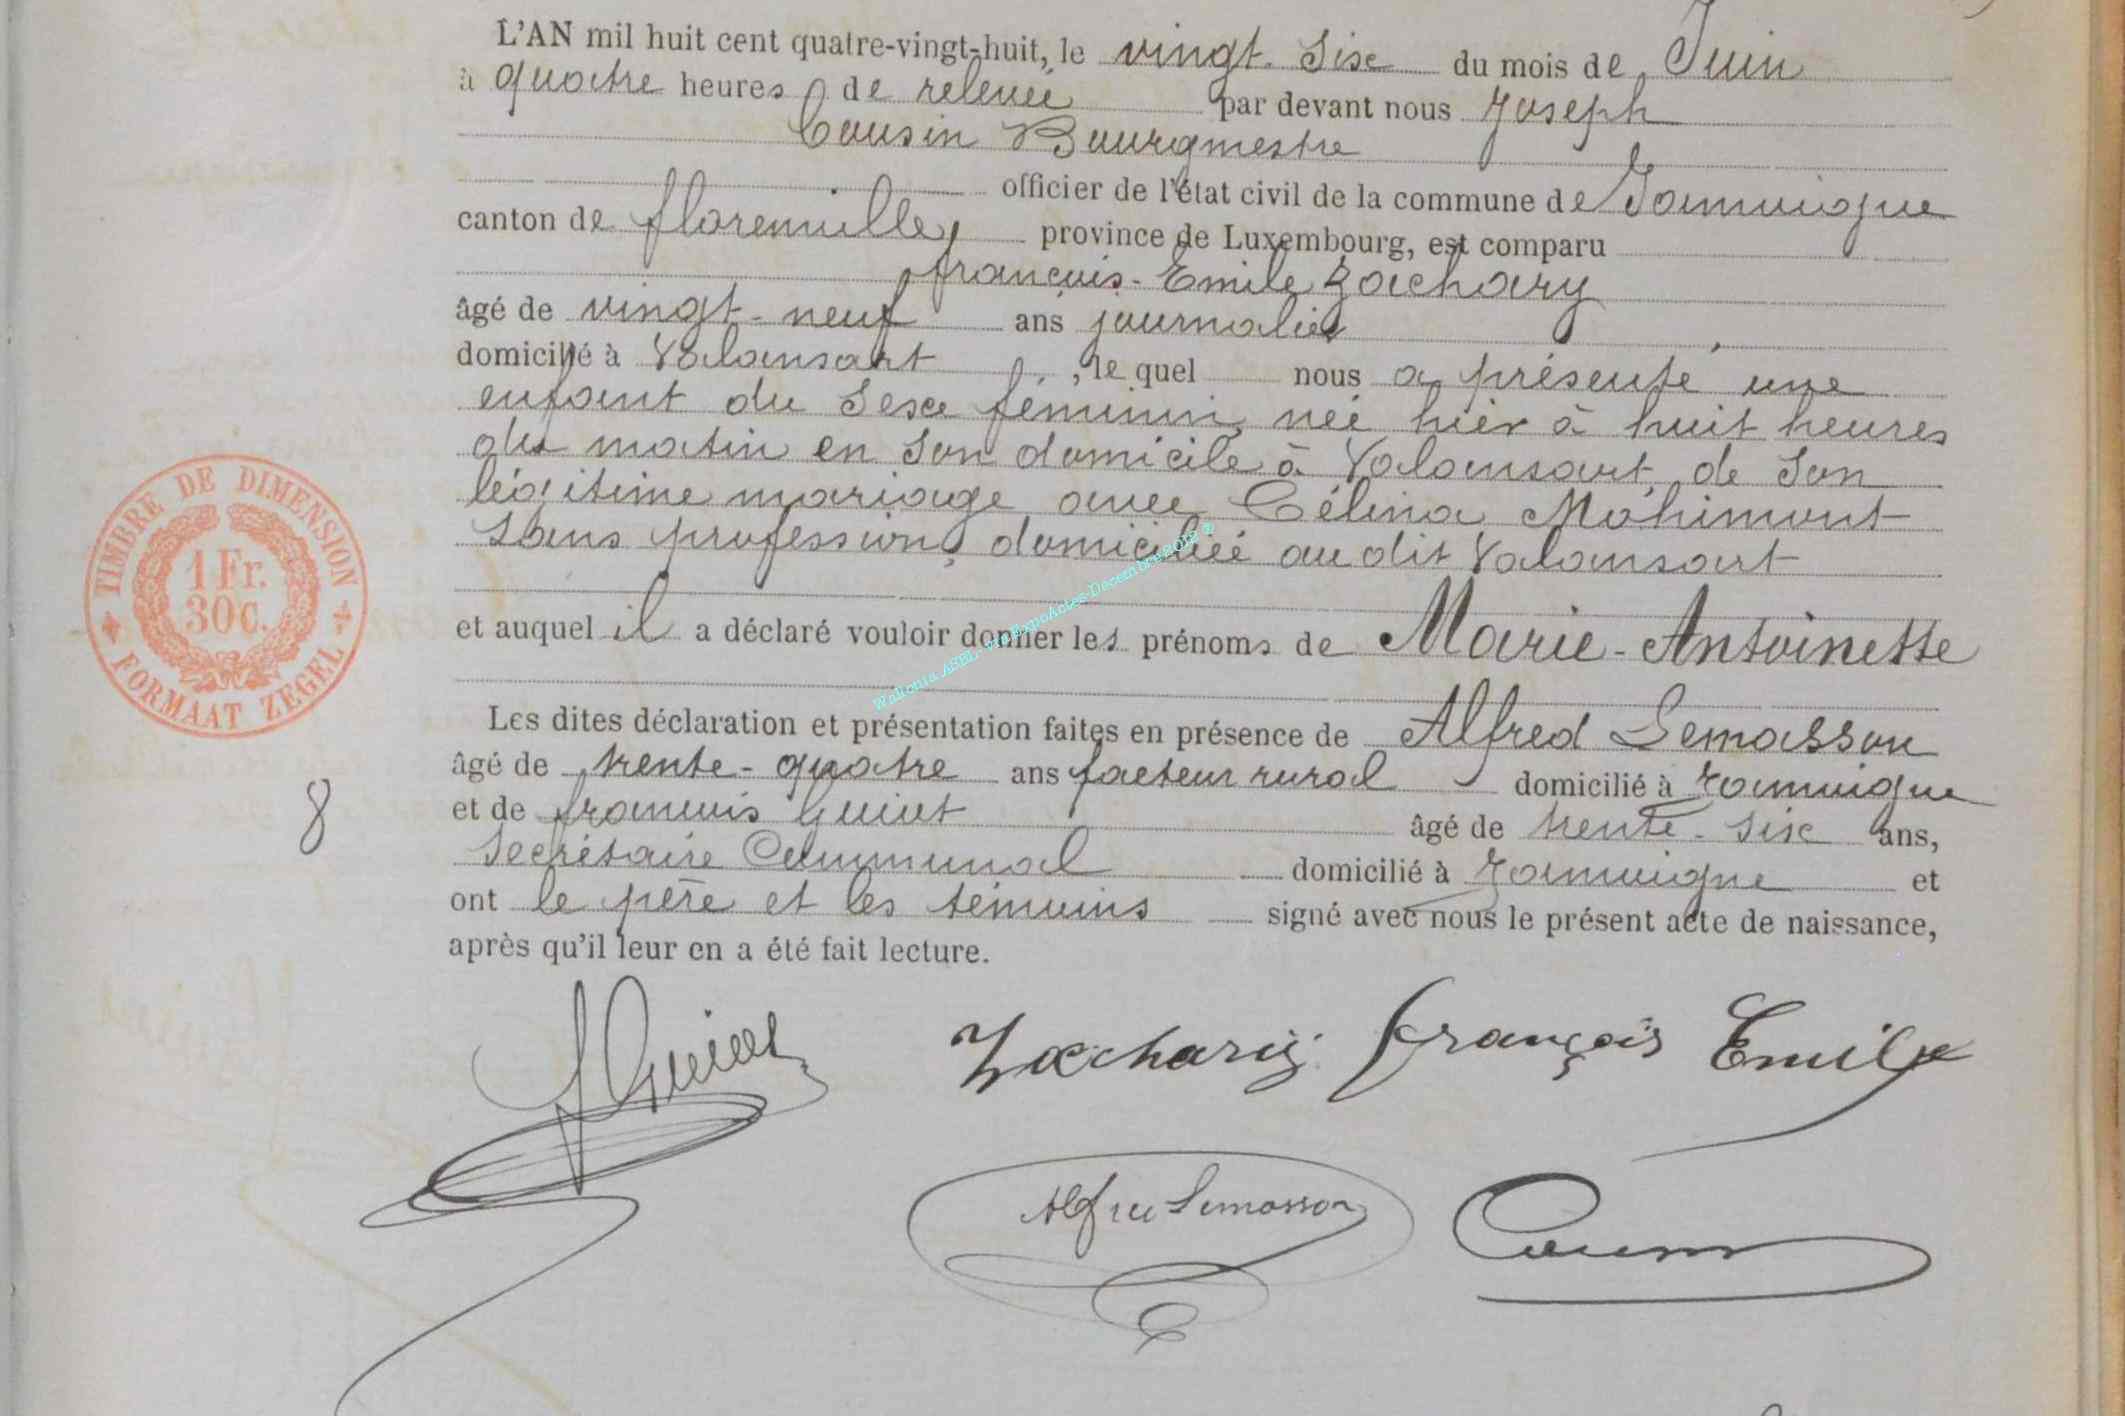 L'AN mil huit cent quatre-vingt-huit, le vingt-six du mois de Juin
à quatre heures de relevée par devant nous Joseph
Cousin Bourgmestre
officier de l'état civil de la commune de Jamoigne
canton de florenville, province de Luxembourg, est comparu
françois-Emile Zachary
âgé de vingt-neuf ans journalier
domicilié à Valansart, le quel nous a présenté une
enfant du sexe féminin, née hier à huit heures
du matin en son domicile à Valansart, de son
légitime mariage avec Célina Mohimont
sans profession, domiciliée au dit Valansart
et auquel il a déclaré vouloir donner les prénoms de Marie-Antoinette
Les dites déclaration et présentation faites en présence de Alfred Lemasson
âgé de trente-quatre ans facteur rural domicilié à Jamoigne
et de francois Guiot âgé de trente-six ans,
Secrétaire Communal domicilié à Jamoigne et
ont le père et les témoins signé avec nous le présent acte de naissance,
après qu'il leur en a été fait lecture.
TIMBRE DE DIMENSION
1 Fr.
30c.
FORMAAT ZEGEL
8
Wallonia ASBL - Via ExpoActes-Decembre 2012 ®
f Guiot
Zacharij françois Emile
Alfred Lemasson
Cousin